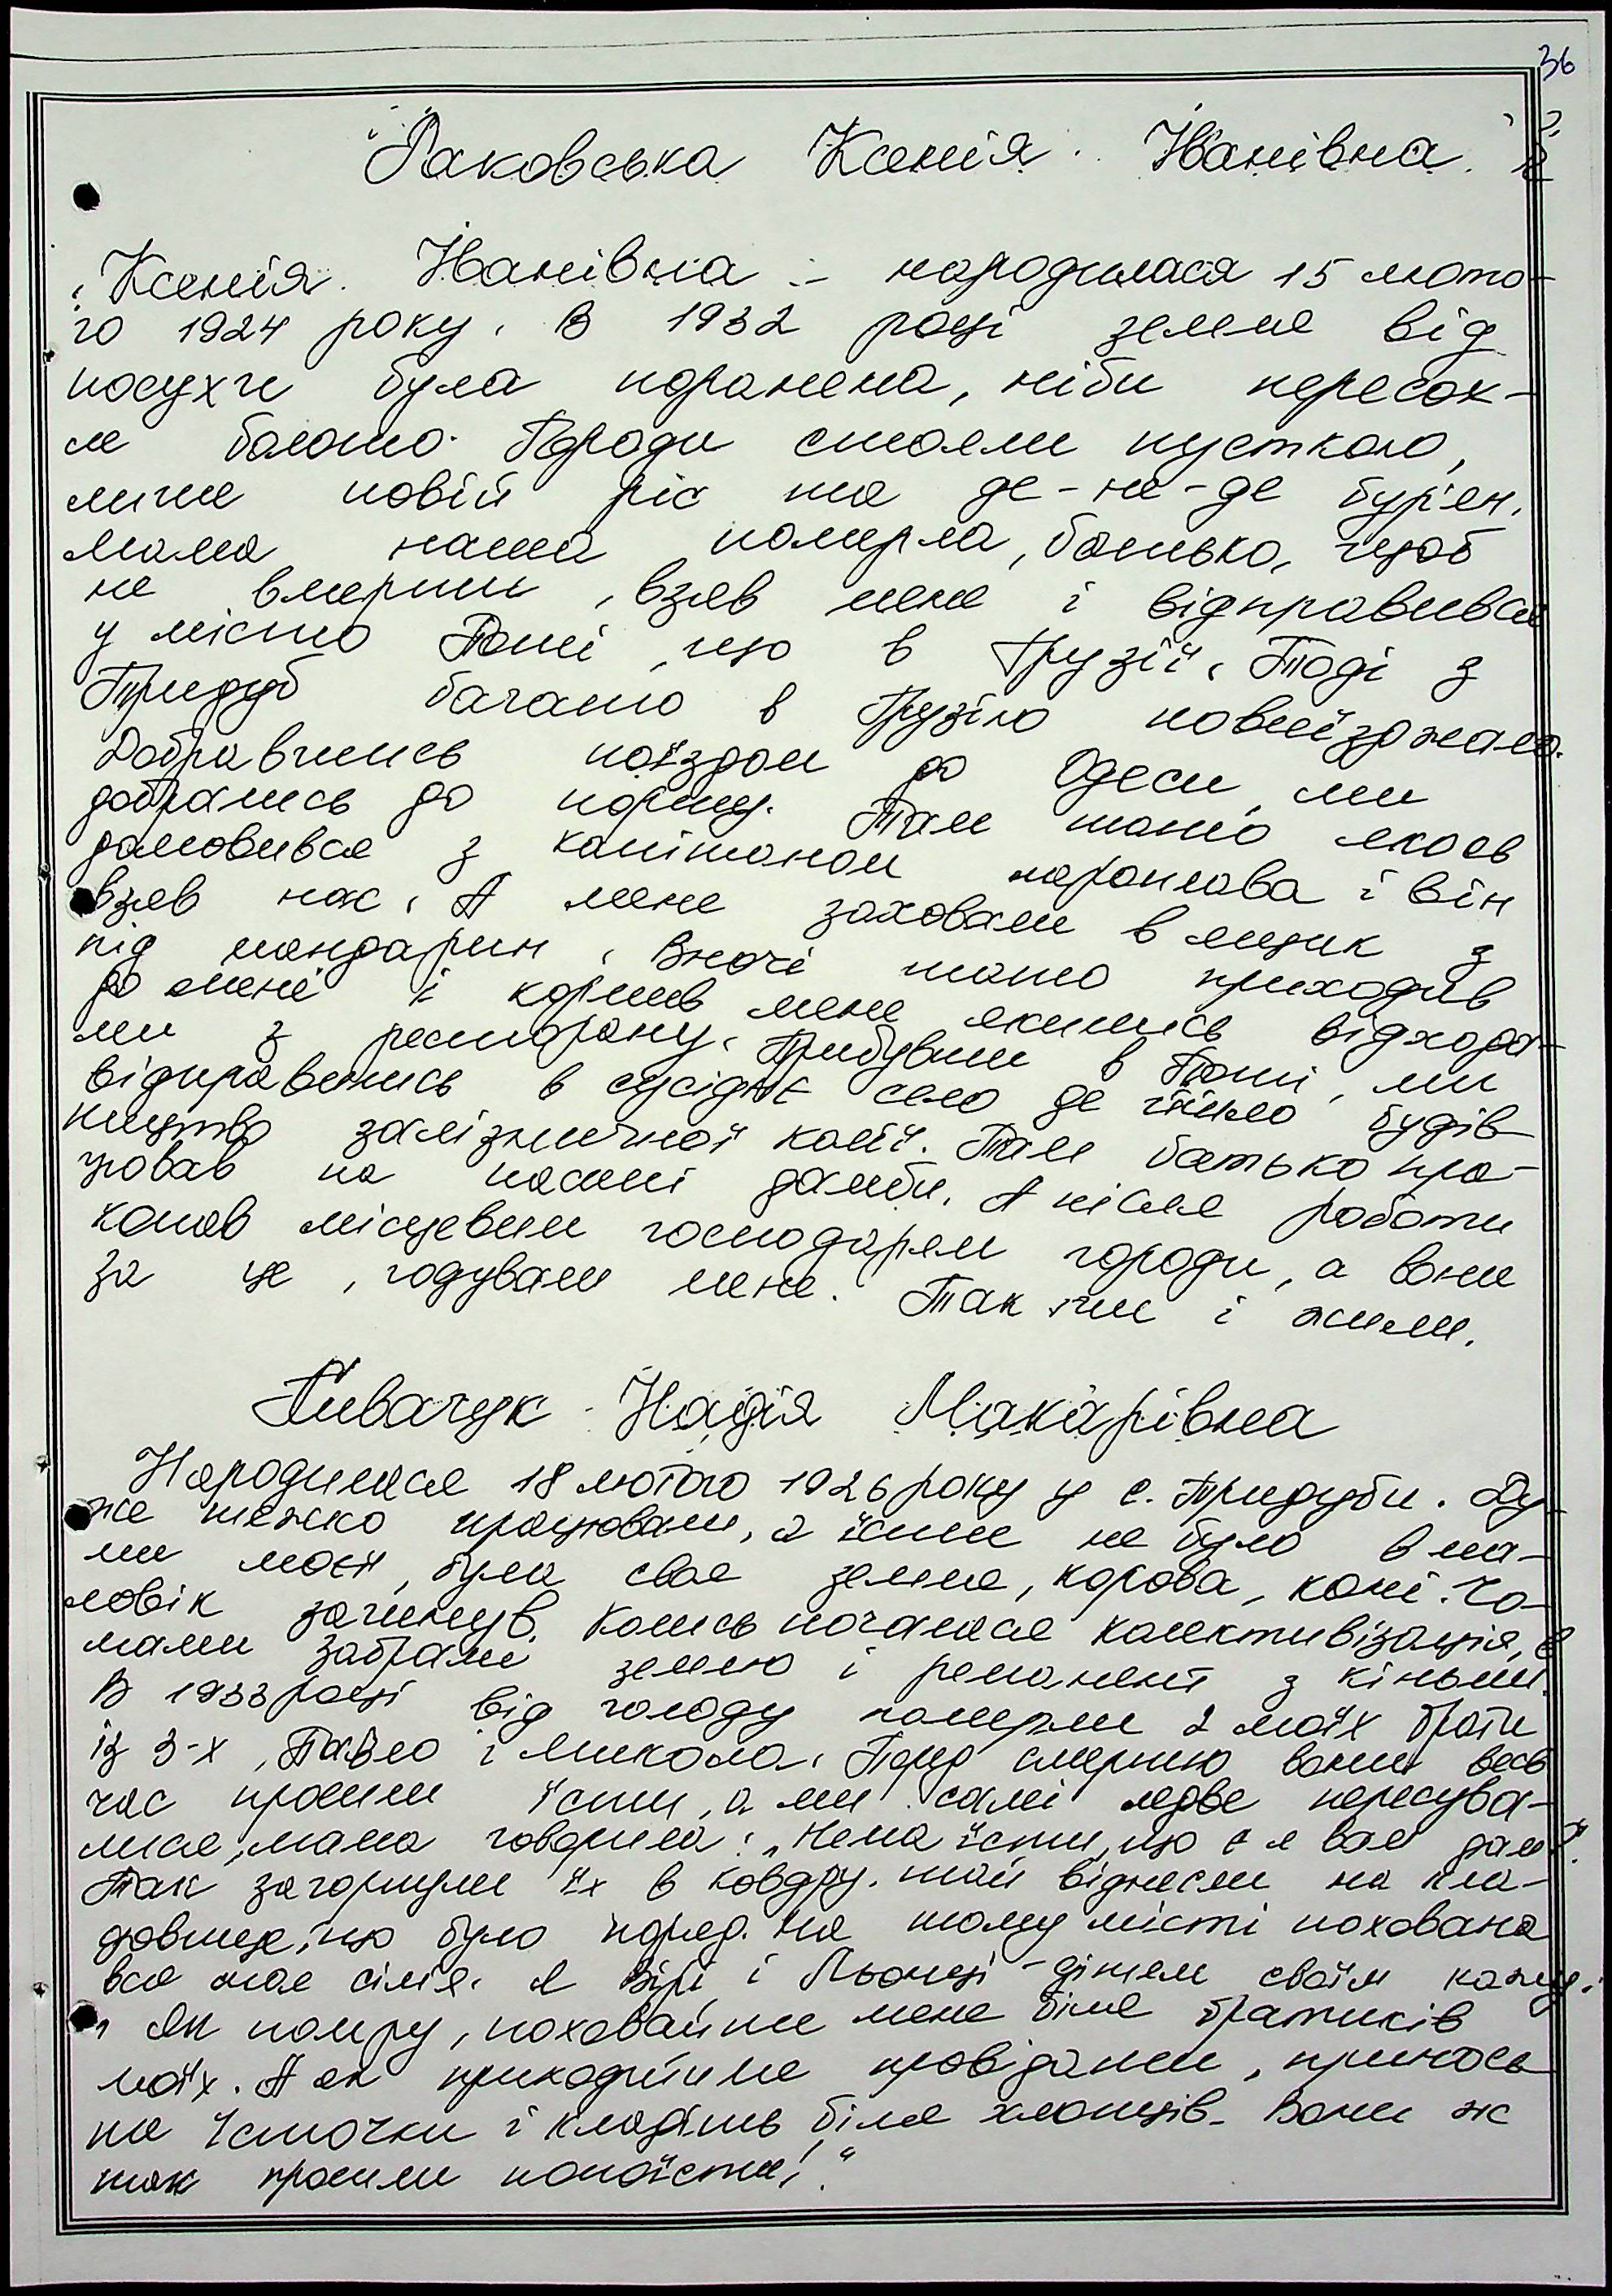 36
Раковська Ксенія Іванівна
Ксенія Іванівна - народилася 15 люто-
го 1924 року. В 1932 році земля від
посухи була поранена, ніби пересох-
ле болото. Городи стояли пусткою,
лише повій ріс та де-не-де бур'ян.
Мама наша померла, батько, щоб
не вмерти, взяв мене і відправився
у місто Поті, що в Грузії. Тоді з
Тридуб багато в Грузію повиїзджало.
Добравшись поїздом до Одеси, ми
добрались до порту. Там тато якось
домовився з капітаном пароплава і він
взяв нас. А мене заховали в ящик з
під мандарин. Вночі тато приходив
до мене і кормив мене якимись відхода-
ми з ресторану. Прибувши в Поті, ми
відправились в сусіднє село де йшло будів-
ництво залізничної колії. Там батько пра-
цював на насипі дамби. А після роботи
копав місцевим господарям городи, а вони
за це, годували мене. Так ми і жили.
Пивачук Надія Макарівна
Народилася 18 лютого 1926 року у с. Тридуби. Ду-
же тяжко працювали, а їсти не було в ма-
ми моєї, була своя земля, корова, коні. Чо-
ловік загинув. Колись почалася колективізація, в
мами забрали землю і реманент з кіньми.
В 1933 році від голоду померли 2 моїх брати
із 3-х, Павло і Микола. Перед смертю вони весь
час просили їсти, а ми самі ледве пересува-
лися, мама говорила: „Нема їсти, що є я вам дам".
Так загорнули їх в ковдру. тай віднесли на кла-
довище, що було поряд. На тому місті похована
вся моя сім'я. Я Вірі і Льонці - дітям своїм кажу:
„ Як помру, поховайте мене біля братиків
моїх. А як приходитиме провідати, приносьте
їсточки і кладіть біля хлопців. Вони ж
так просили попоїсти!"